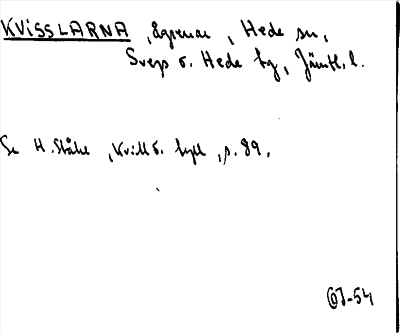 KVISSLARNA, ägorna, Hede sn,
Svegs o. Hede hg, Jämtl. l.
Se H. Ståhle, Kvill o. tyll, s. 89.
OJ-54